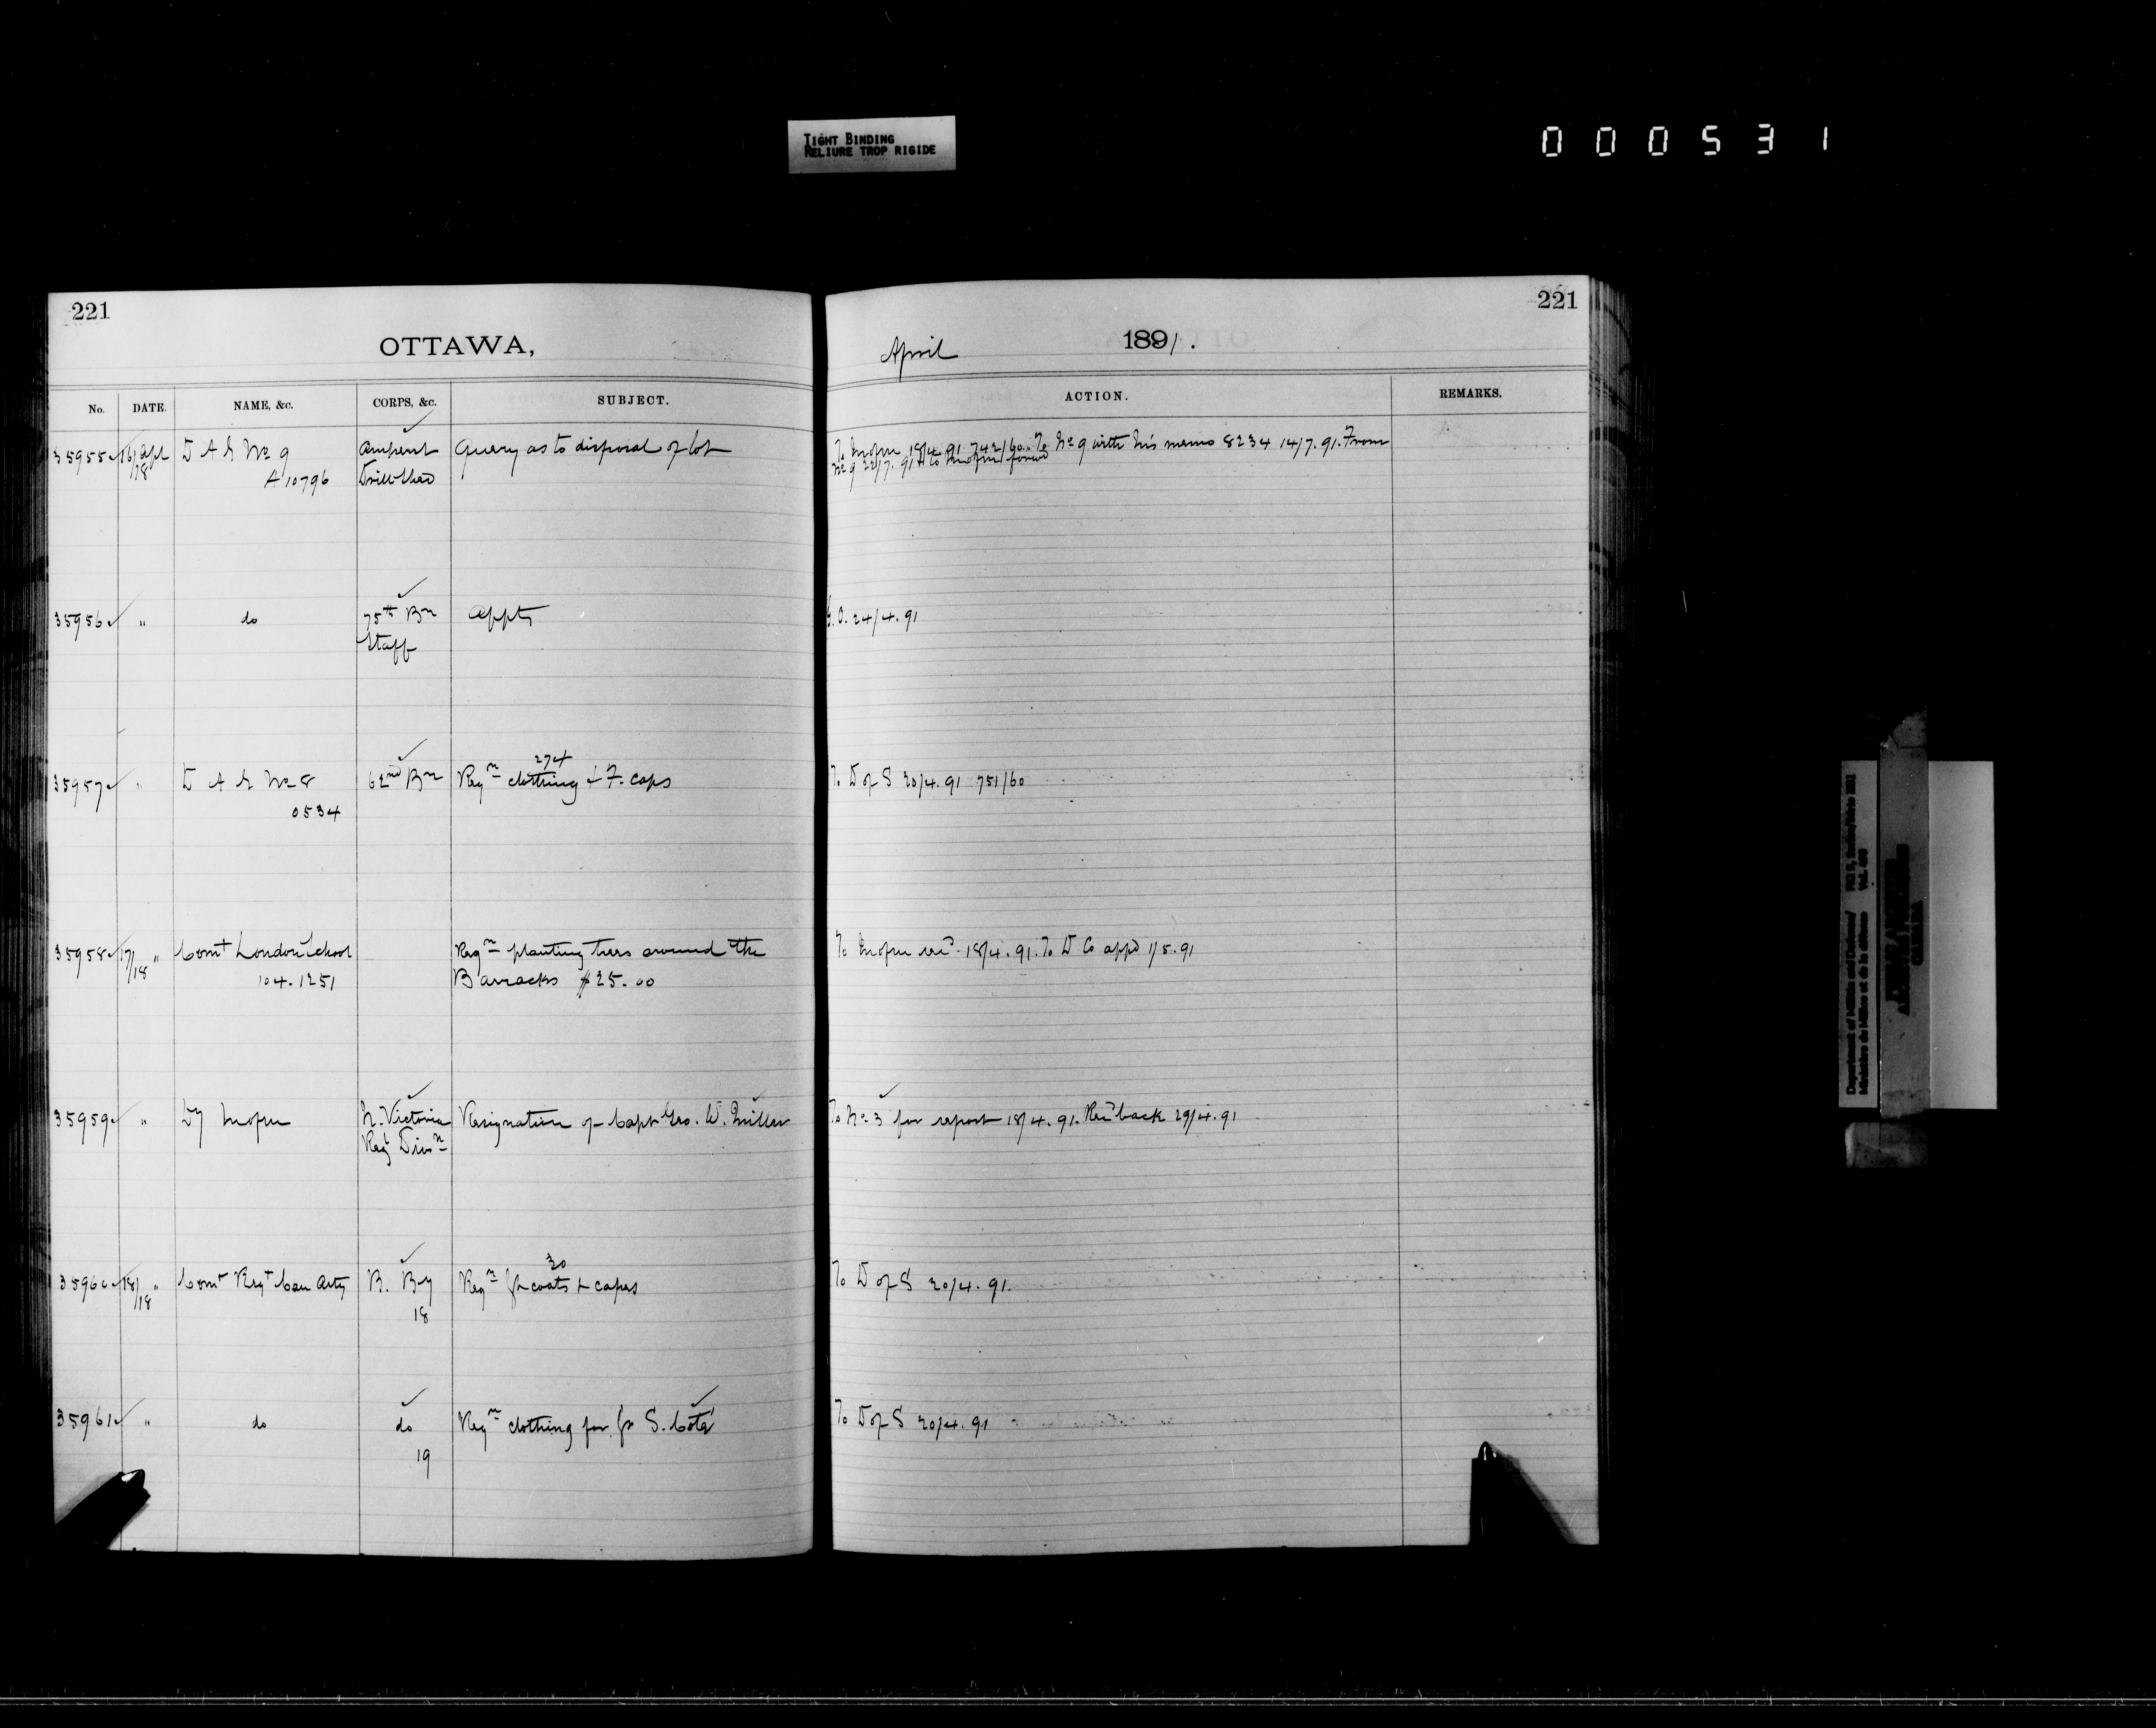 TIGHT BINDING
RELIURE TROP RIGIDE
000531
221
OTTAWA,
April 1891.
221
No. DATE. NAME, &c. CORPS, &c. SUBJECT. ACTION. REMARKS.
35955 16/18 Apl D A G No 9 Amherst Query as to disposal of lot To 18/4.91 742/60. To No 9 with his memo 8234 14/7.91. From
A 10796 Drill Shed No 9 22/7.91
35956 " do 75th Bn Appts G.O. 24/4.91
Staff
274
35957 " D A G No 8 62nd Bn Reqn clothing & F. caps To D of S 20/4.91 751/60
0534
35958 17/18 " Comt London School Reqn planting trees around the To 18/4.91. To D Co appd 1/5.91
104.1251 Barracks $25.00
35959 " Dy N. Victoria Resignation of Capt Geo. W. Miller To No 3 for report 18/4.91. Recd back 29/4.91
Regt Divn
30
35960 18/18 " Comt Regt Can Arty B. By Reqn Gt coats & capes To D of S 20/4.91.
18
35961 " do do Reqn clothing for Gr S. Coté To D of S 20/4.91
19
Department of Militia and Defence
Ministère de Milice et de la défense